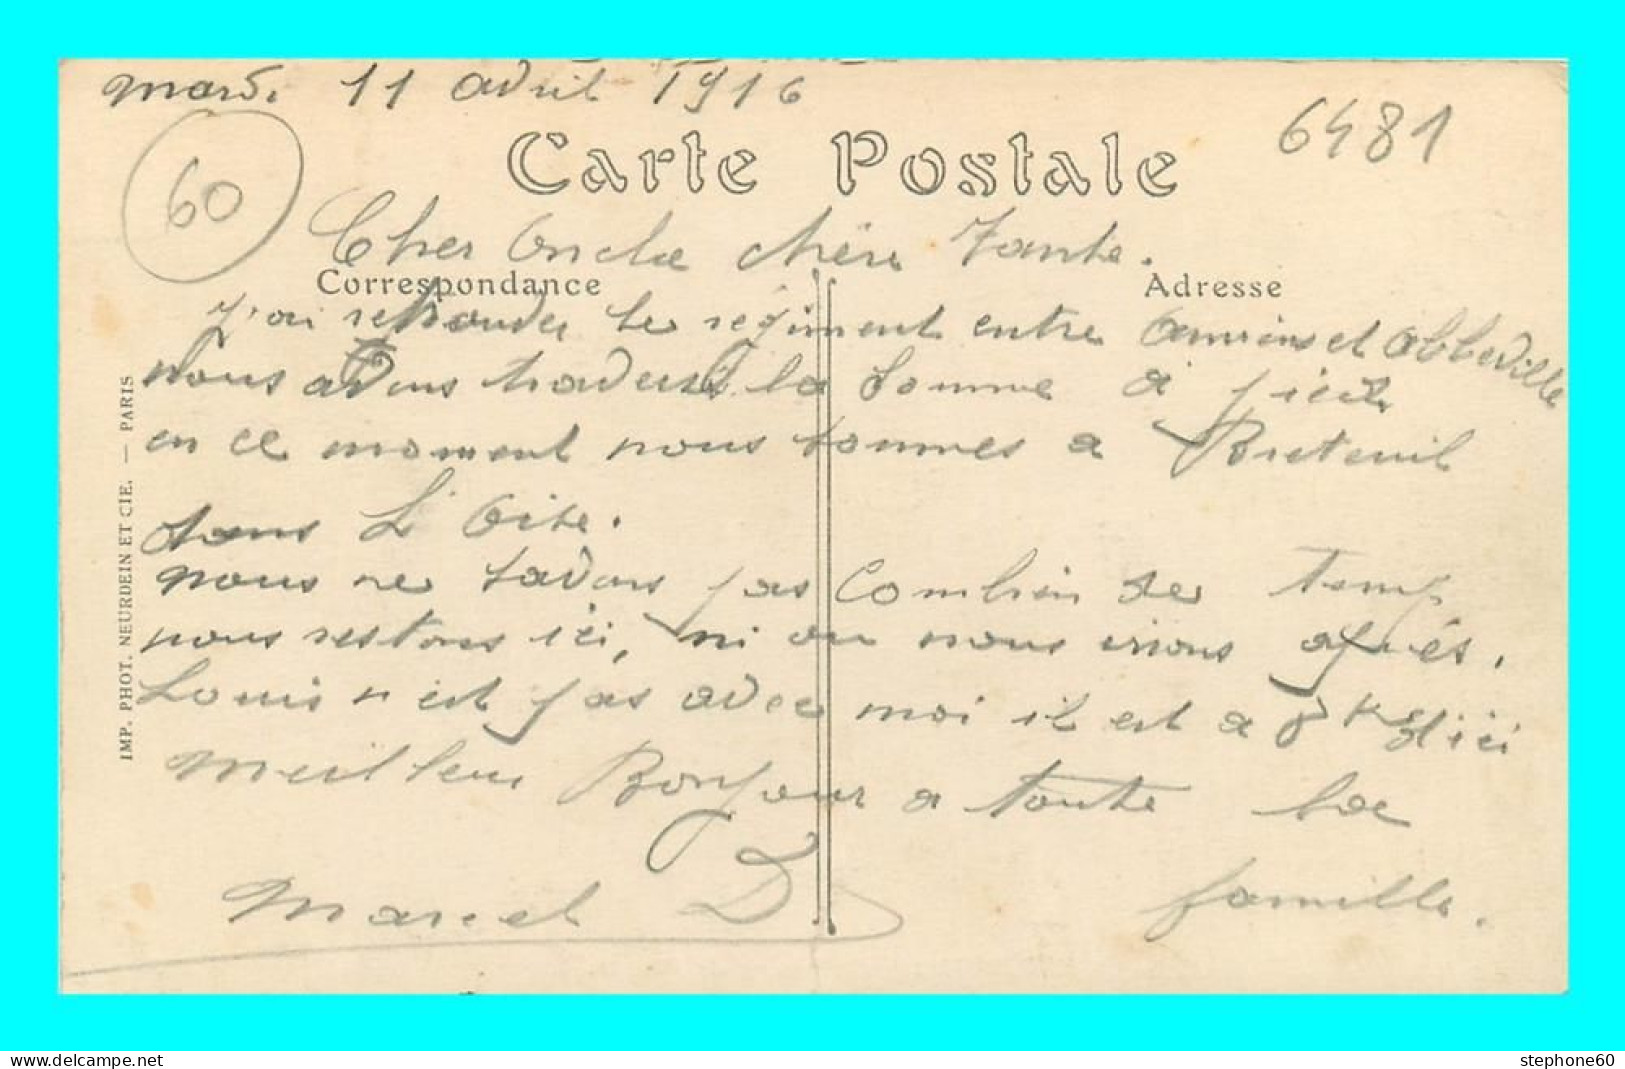 mardi 11 avril 1916
6481
60
Carte Postale
Cher Oncle chère Tante.
Correspondance
Adresse
J'ai retrouver le régiment entre Amiens et Abbeville
nous avons traversé la Somme à
en ce moment nous sommes a Breteuil
dans L'Oise.
nous ne savons pas Combien de temp
nous restons ici, ni ou nous irions après.
Louis n'est pas avec moi il est a 8 K d'ici
Meilleur Bonjour a toute la
famille.
Marcel D
IMP. PHOT. NEURDEIN ET CIE. — PARIS
stephone60